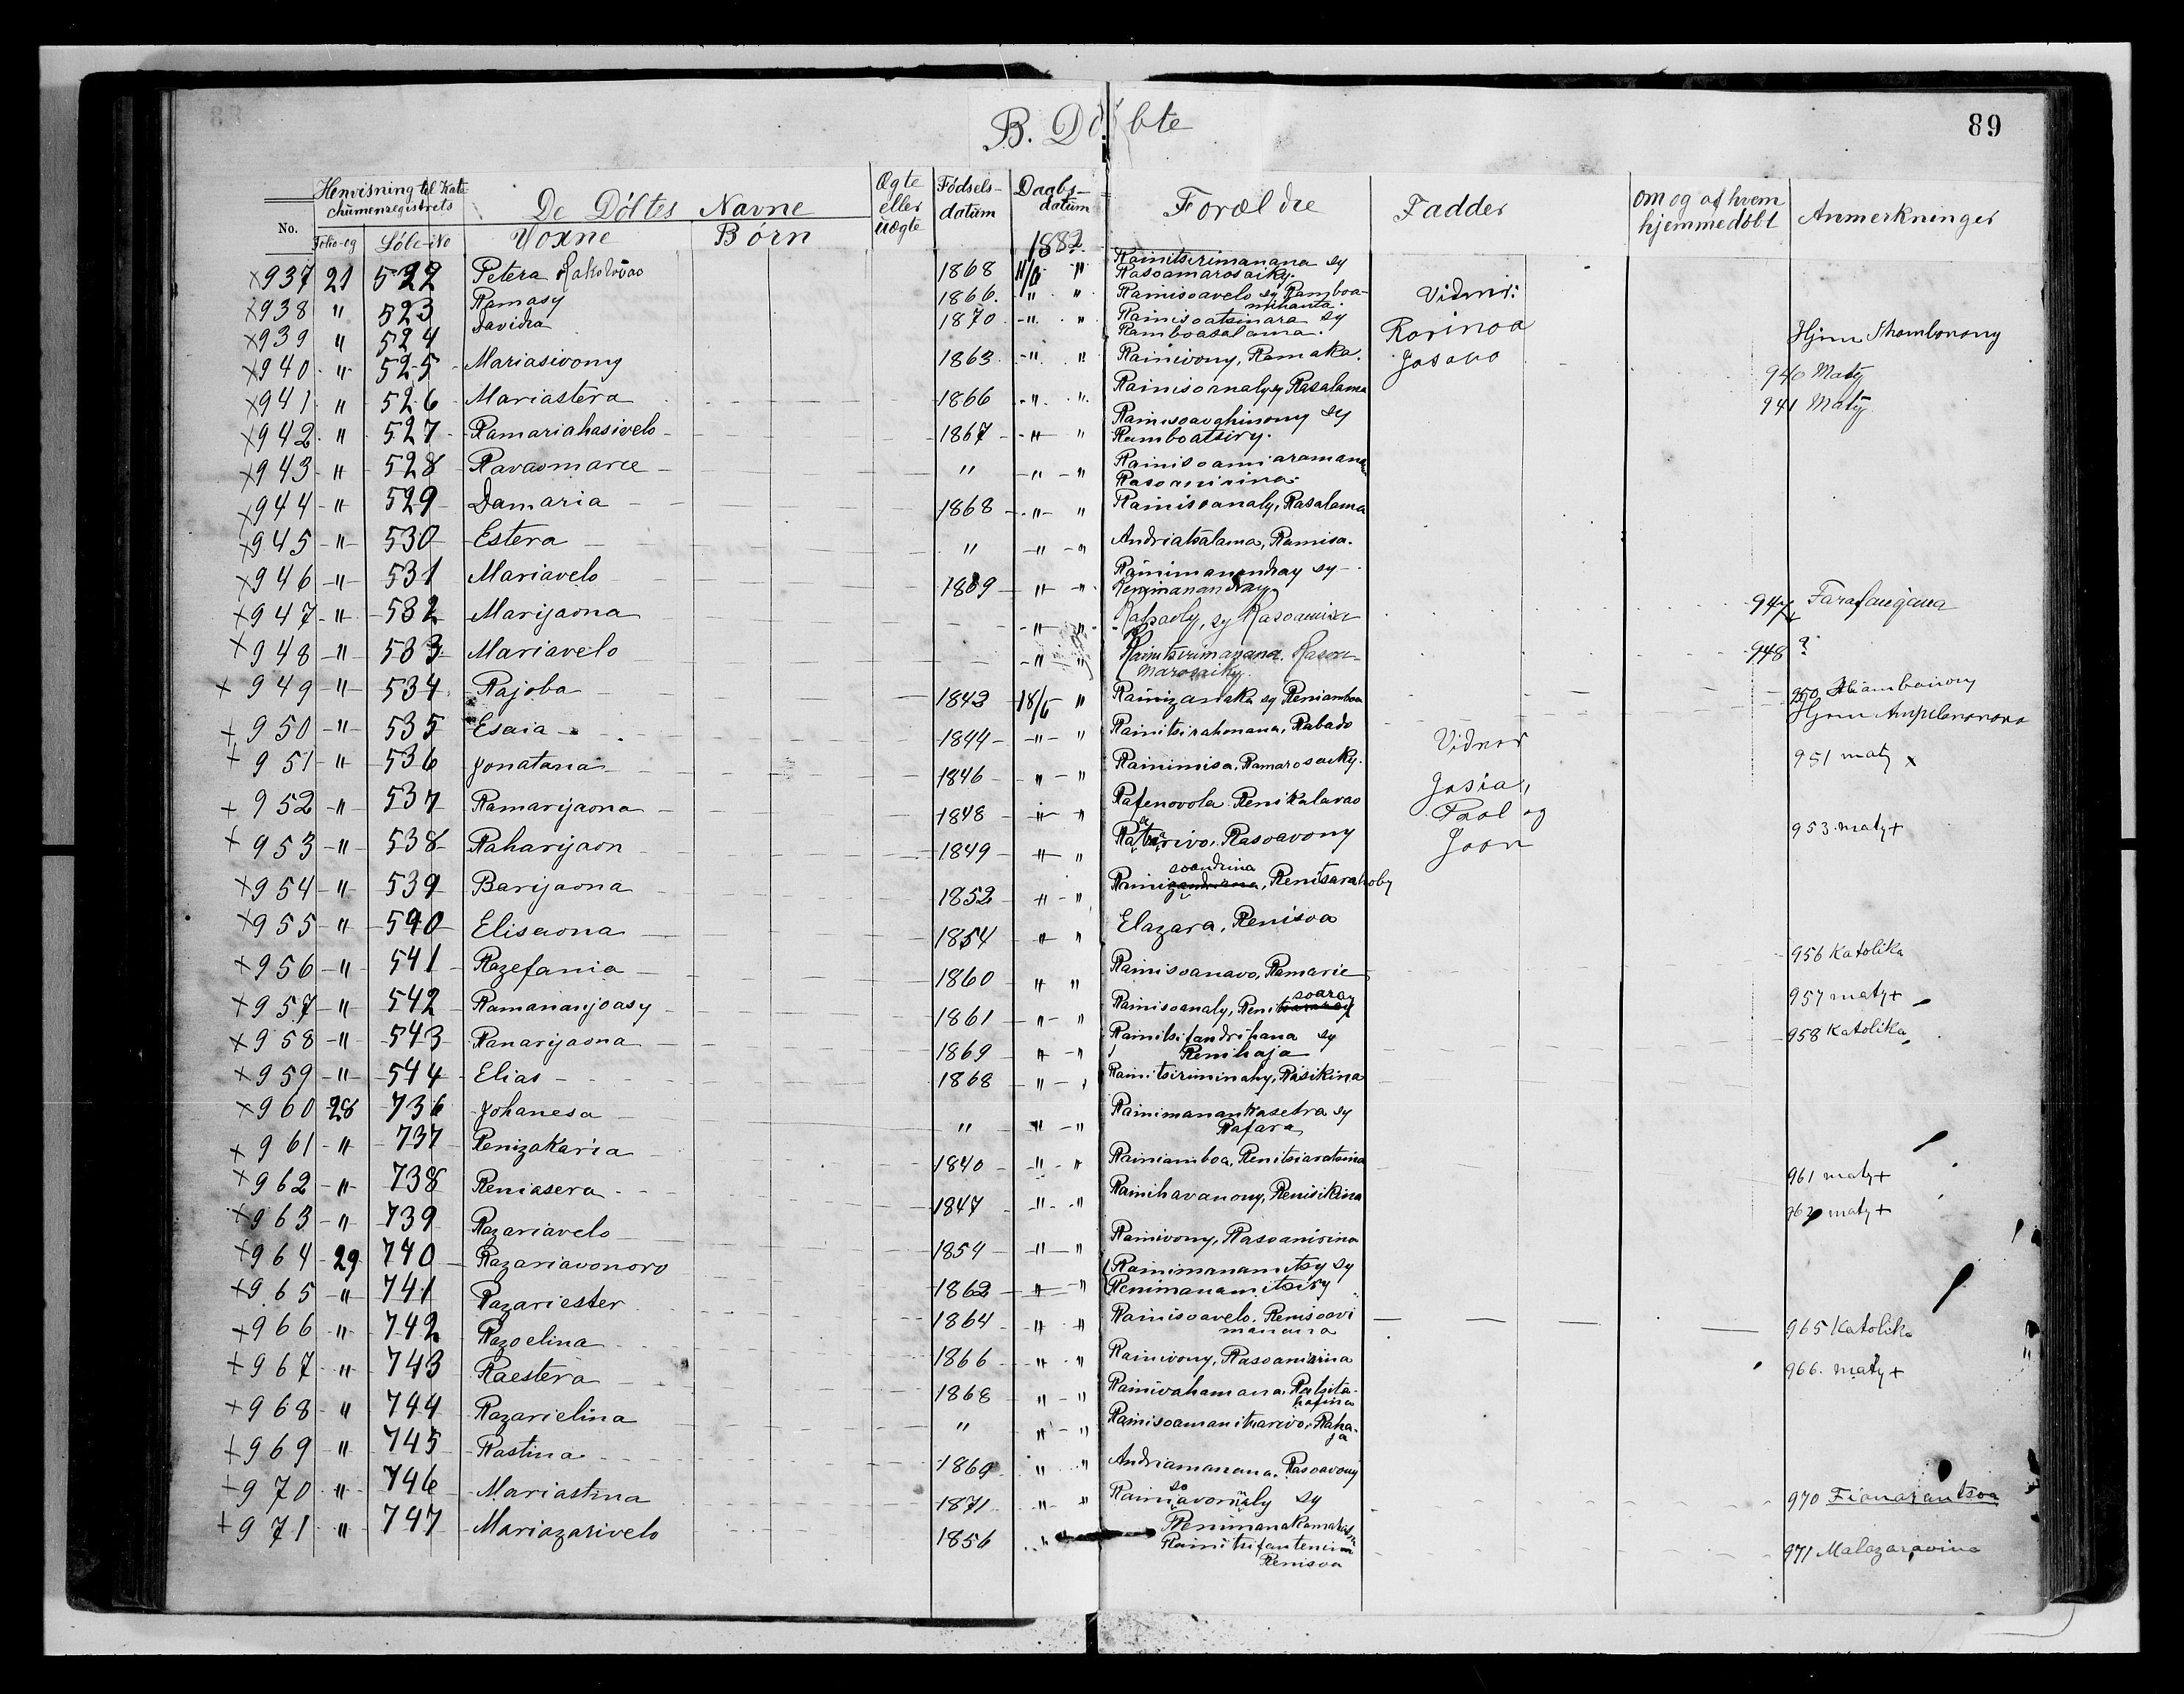 B. Döbte
89
Henvisning til Kate-
chumenregistrets
De Döbtes Navne
Ægte eller uægte
Fødsels-datum
Daabs-datum
Forældre
Fadder
om og af hvem hjemmedöbt
Anmerkninger
No. Folio-og Löbe-No Voxne Börn
1882.
×937 21 522 Petera 1868 11/6 " Rainitsirimanana sy Rasoamarosaiky.
×938 " 523 Ramasy 1866. " " Rainisoavelo sy Ramboa- Vidner:
×939 " 524 Davidra 1870 " " Rainisoatsinara sy Ramboasalama. Rarinoa
×940 " 525 Mariasivony 1863. " " Rainivony, Ramaka. Josavo 940 Maty
×941 " 526 Mariastera 1866 " " Rainisoanaly sy Rasalama 941 Maty
×942 " 527 Ramariahasivelo 1867 " " sy Ramboatsiry.
×943 " 528 Ravaomarie " " "
×944 " 529 Damaria 1868 " " Rainisoanaly, Rasalama
×945 " 530 Estera " " " Andriatsalama, Ramisa.
×946 " 531 Mariavelo 1869 " " Rainimanandray sy Renimanandray
×947 " 532 Marijaona " " sy 947 Farafangana
×948 " 533 Mariavelo " " Rainitsirimanana. 948 ?
× 949 " 534 Rajoba 1843 18/6 " Rainizanaka sy Reniamboa
+ 950 " 535 Esaia 1844 " " Rainitsirahonana, Rabado Vidner
+ 951 " 536 Jonatana 1846 " " Rainimisa, Ramarosaiky. Josia, 951 maty ×
+ 952 " 537 Ramarijaona 1848 " " Rafenovola Renikalavao Paol og
+ 953 " 538 Raharijaon 1849 " " Rasoavony Joon 953. maty +
×954 " 539 Barijaona 1852 " " Rainisoandrina, Renitsarahoby
×955 " 540 Eliseona 1854 " " Elazara, Renisoa
×956 " 541 Razefania 1860 " " Rainisoanavo, Ramarie 956 Katolika
+957 " 542 Ramananjoasy 1861 " " Rainisoanaly, Renisoaray 957 maty +
×958 " 543 Ranarijaona 1869 " " Rainitsifandrihana sy Renihaja 958 Katolika
×959 " 544 Elias 1868 " " Rainitsiriminahy, Rasikina
×960 28 736 Johanesa " " " Rainimanankasetra sy Rafara
+ 961 " 737 Renizakaria 1840 " " Rainiamboa, Renitsiaratsina 961 maty +
×962 " 738 Reniasera 1847 " " Rainihavanony, Renisikina 962 maty +
+963 " 739 Razariavelo 1854 " " Rainivony, Rasoanirina
+964 29 740 Razariavonoro 1862 " " Rainimanamitsy sy Renimanamitsiry
+965 " 741 Razariester 1864 " " Rainisoavelo. Renisoavimanana 965 Katolika
+966 " 742 Razoelina 1866 " " Rainivony, Rasoaniarina 966. maty +
+967 " 743 Raestera 1868 " " Rainivahamana,
+968 " 744 Razarielina " " " Rainisoamanitrarivo, Rahaja
+969 " 745 Rastina 1869 " " Andriamanana. Rasoavony
+970 " 746 Mariastina 1871 " " sy 970 Fianarantsoa
+971 " 747 Mariazarivelo 1856 " Renisoa 971 Malazaravina